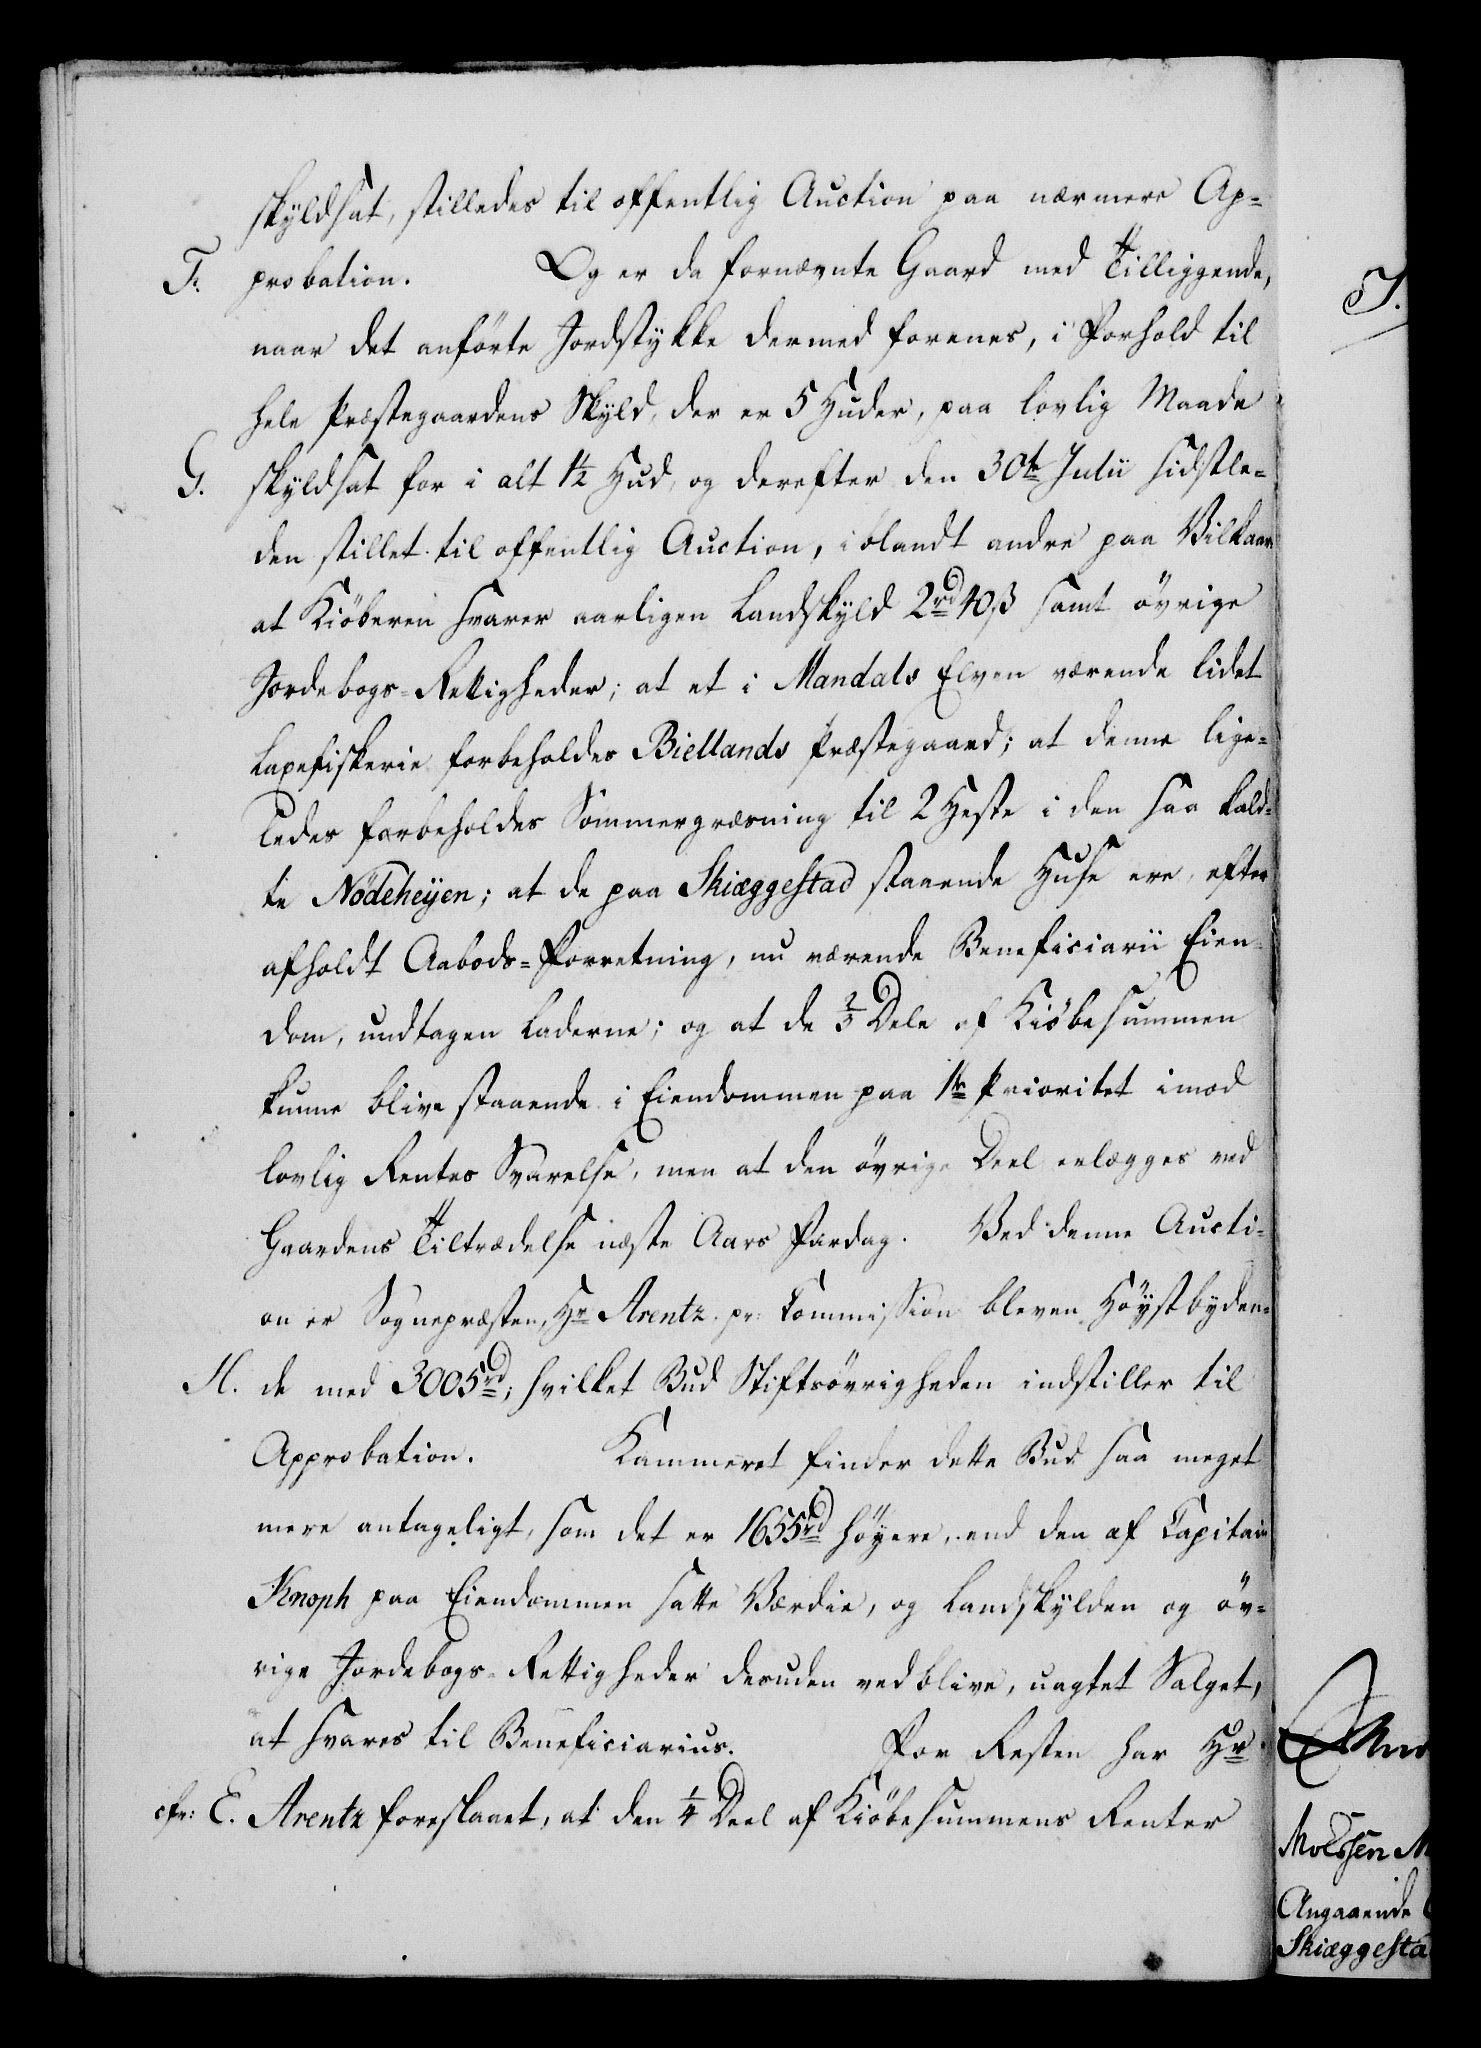 skyldsat, stilledes til offentlig Auction paa nærmere Ap=
F. probation. Og er da fornævnte Gaard med Tilliggende,
naar det anførte Jordstykke dermed forenes, i Forhold til
hele Præstegaardens Skyld, der er 5 Huder, paa lovlig Maade
G. skyldsat for i alt 1½ Hud, og derefter den 30te Julii sidstle=
den stillet til offentlig Auction, iblandt andre paa Vilkaar
at Kiöberen svarer aarligen Landskyld 2rd 40 ß samt övrige
Jordebogs-Rettigheder; at et i Mandals Elven værende lidet
Laxefiskerie forbeholdes Biellands Præstegaard; at denne lige=
ledes forbeholdes Sommergræsning til 2 Heste i den saa kald=
te Nödeheÿen; at de paa Skiæggestad staaende Huse ere, efter
afholdt Aabods=Forretning, nu værende Beneficiarii Eien=
dom, undtagen Laderne; og at de ⅔ Dele af Kiöbesummen
kunne blive staaende i Eiendommen paa 1te Prioritet imod
lovlig Rentes Svarelse, men at den övrige Deel erlægges ved
Gaardens Tiltrædelse næste Aars Fardag. Ved denne Aucti=
on er Sognepræsten, Hr Arentz pr: Commission bleven Höystbyden=
H. de med 3005rd, hvilket Bud Stiftsövrigheden indstiller til
Approbation. Kammeret finder dette Bud saa meget
mere antageligt, som det er 1655rd höyere, end den af Capitain
Knoph paa Eiendommen satte Værdie, og Landskylden og öv=
rige Jordebogs-Rettigheder desuden vedblive, uagtet Salget,
at svares til Beneficiarius. For Resten har Hr
cfr: E. Arentz foreslaaet, at den ¼ Deel af Kiöbesummens Renter
J.
Angaaende
Skiæggesta